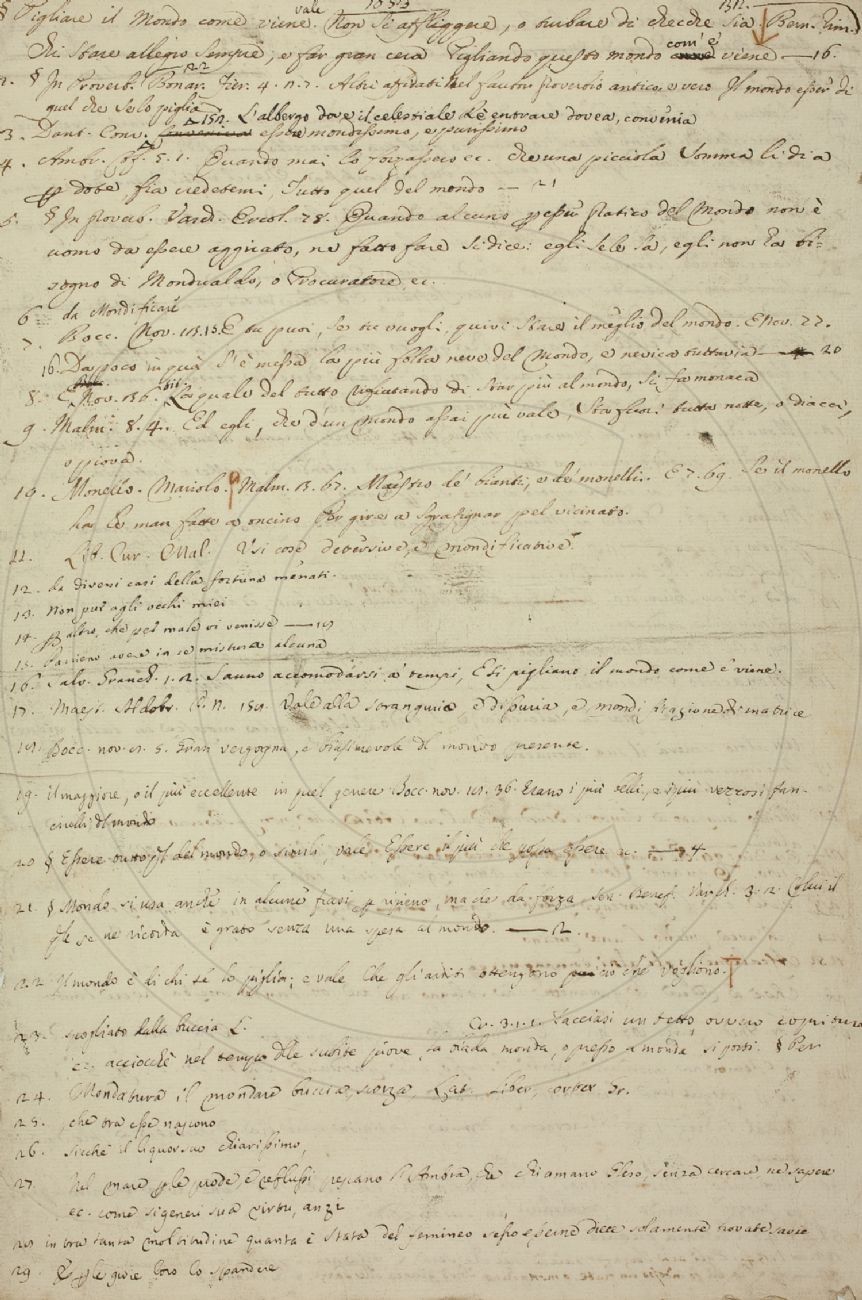 § Pigliare il Mondo come viene. vale Non si affliggere, o turbare di checche sia Bern. rim.
chi stare allegro sempre, e far gran cera Pigliando questo mondo com'è viene — 16.
2. § In Proverb. Bonar. Fier. 4. Altri affidati nel fautor proverbio antico, e vero Il mondo esser di
quel che se lo piglia
3. Dant. Conv. L'albergo dove il celestiale Rè entrare dovea, convenia
essere mondissimo, e purissimo
4. Ambr. Cof. 5. 1. Quando mai lo sforzassero ec. che una picciola somma li dia
p dote, fia credetemi, Tutto quel del mondo — 21
5. § In proverb. Varch. Ercol. 78. Quando alcuno per esser pratico del Mondo non è
uomo da essere aggirato, ne fatto fare si dice: egli se le sa, egli non ha bi-
sogno di Mondualdo, o Procuratore ec.
6 da Mondificare
7. Bocc. Nov. E tu puoi, se tu vuogli, quivi stare il meglio del mondo. E nov. 77.
16. Da poco in quà s'è messa la più folta neve del mondo, e nevica tuttavia — 20
8. E Nov. 136. La quale del tutto rifiutando di star più al mondo, si fa monaca
9. Malm. 8. 4. Ed egli, che d'un mondo assai più vale, Sta fuori tutta notte, o diacci,
o piova.
10. Monello. Mariolo. Malm. Maestro de' bianti, e de' monelli. E 7. 69. Se il monello
ha le man fatte a oncino Per gire a sgraffignar pel vicinato.
11. Lib. Cur. Mal. Usi cose detersive, e mondificative
12. da diversi casi della fortuna menati.
13. Non pur agli occhi miei
14. p altro, che pel male vi venisse —
15. avere in se mistura alcuna
16. Salv. Granch. 1. 2. Sanno accomodarsi a' tempi, E si pigliano il mondo come è viene.
17. Maest. Aldobr. P. N. Vale alla stranguria e disuria, e mondificazione di matrice
18. Bocc. nov. 5. Gran vergogna, e biasimevole del mondo presente.
19. il maggiore, o il più eccellente in quel genere Bocc. nov. 36. Erano i più belli, e i più vezzosi fan-
ciulli del mondo
20 § Essere tutto quel del mondo, o simili, vale Essere il più che possa essere ec. — 4
21. § Mondo si usa anche in alcune frasi p ripieno, ma che da forza Sen. Benef. Varch. 3. 2. Colui il
qle se ne ricorda è grato senza una spesa al mondo. — 2.
22 Il mondo è di chi sè lo piglia; e vale Che gli arditi ottengono ciò che vogliono.
23. spogliato dalla buccia L. Cr. 3. 1. 1. Facciasi un tetto, ovvero copritura
ec. acciocchè nel tempo delle subite piove, la biada monda, o presso a monda si porti. § Per
24. Mondatura il mondare buccia, scorza, Lat. liber, cortex Gr.
25. che tra esse nascono
26. sicchè il liquor sao chiarissimo,
27. Nel mare p le prode, e reflussi pescano l'Ambra, che chiamano Elso, senza cercare, ne sapere
ec. come si generi sua virtù, anzi
28 in tra tanta moltitudine quanta è stata del femineo sesso esserne diece solamente trovate savie
29. p le gioie loro lo spandere